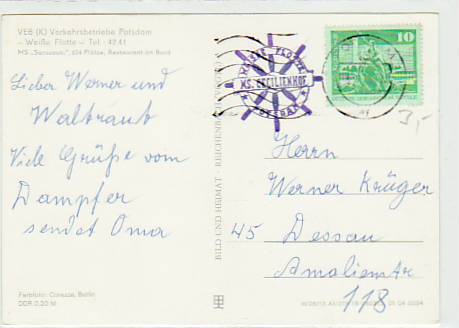 VEB (K) Verkehrsbetriebe Potsdam
– Weiße Flotte – Tel.: 4241
MS „Sanssouci", 624 Plätze, Restaurant an Bord
Lieber Werner und
Waltraut
Viele Grüße vom
Dampfer
sendet Oma
Farbfoto: Darr, Berlin
DDR 0,20 M
BILD UND HEIMAT REICHENBACH
WEISSE FLOTTE
MS. CECILIENHOF
POTSDAM
10
3,-
Herrn
Werner Krüger
45 Dessau
Amalienstr
118